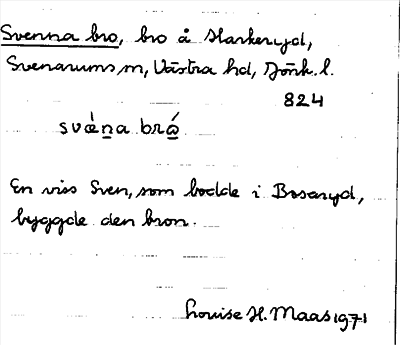 Svenna bro, bro å Harkeryd,
Svenarums sn, Västra hd, Jönk. l.
824
svǽn̲a brǻ̲
En viss Sven, som bodde i Boseryd,
byggde den bron.
Louise H. Maas 1971